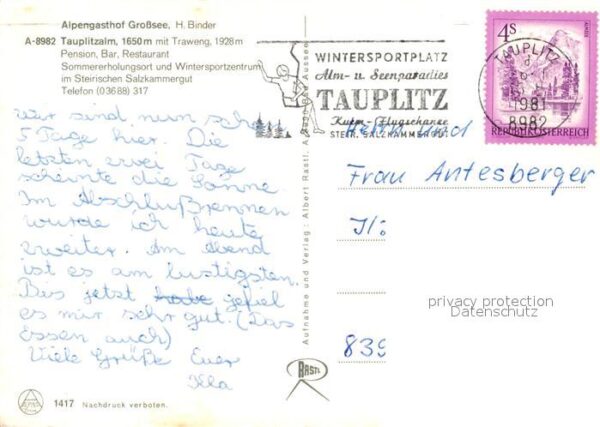 Alpengasthof Großsee, H. Binder
A-8982 Tauplitzalm, 1650 m mit Traweng, 1928 m
Pension, Bar, Restaurant
Sommererholungsort und Wintersportzentrum
im Steirischen Salzkammergut
Telefon (0 36 88) 317
wir sind nun schon
5 Tage hier. Die
letzten zwei Tage
scheinte die Sonne.
Im Abschlußrennen
wurde ich heute
zweiter. Am Abend
ist es am lustigsten.
Bis jetzt habe gefiel
es mir sehr gut. (Das
Essen auch)
Viele Grüße Euer
1417 Nachdruck verboten.
Aufnahme und Verlag: Albert Rastl, Bad Aussee
RASTL
WINTERSPORTPLATZ
Alm- u. Seenparadies
TAUPLITZ
Kulm-Flugschanze
STEIR. SALZKAMMERGUT
TAUPLITZ
1981
8982
4S
REPUBLIK ÖSTERREICH
Herrn und
Frau Antesberger
privacy protection
Datenschutz
839